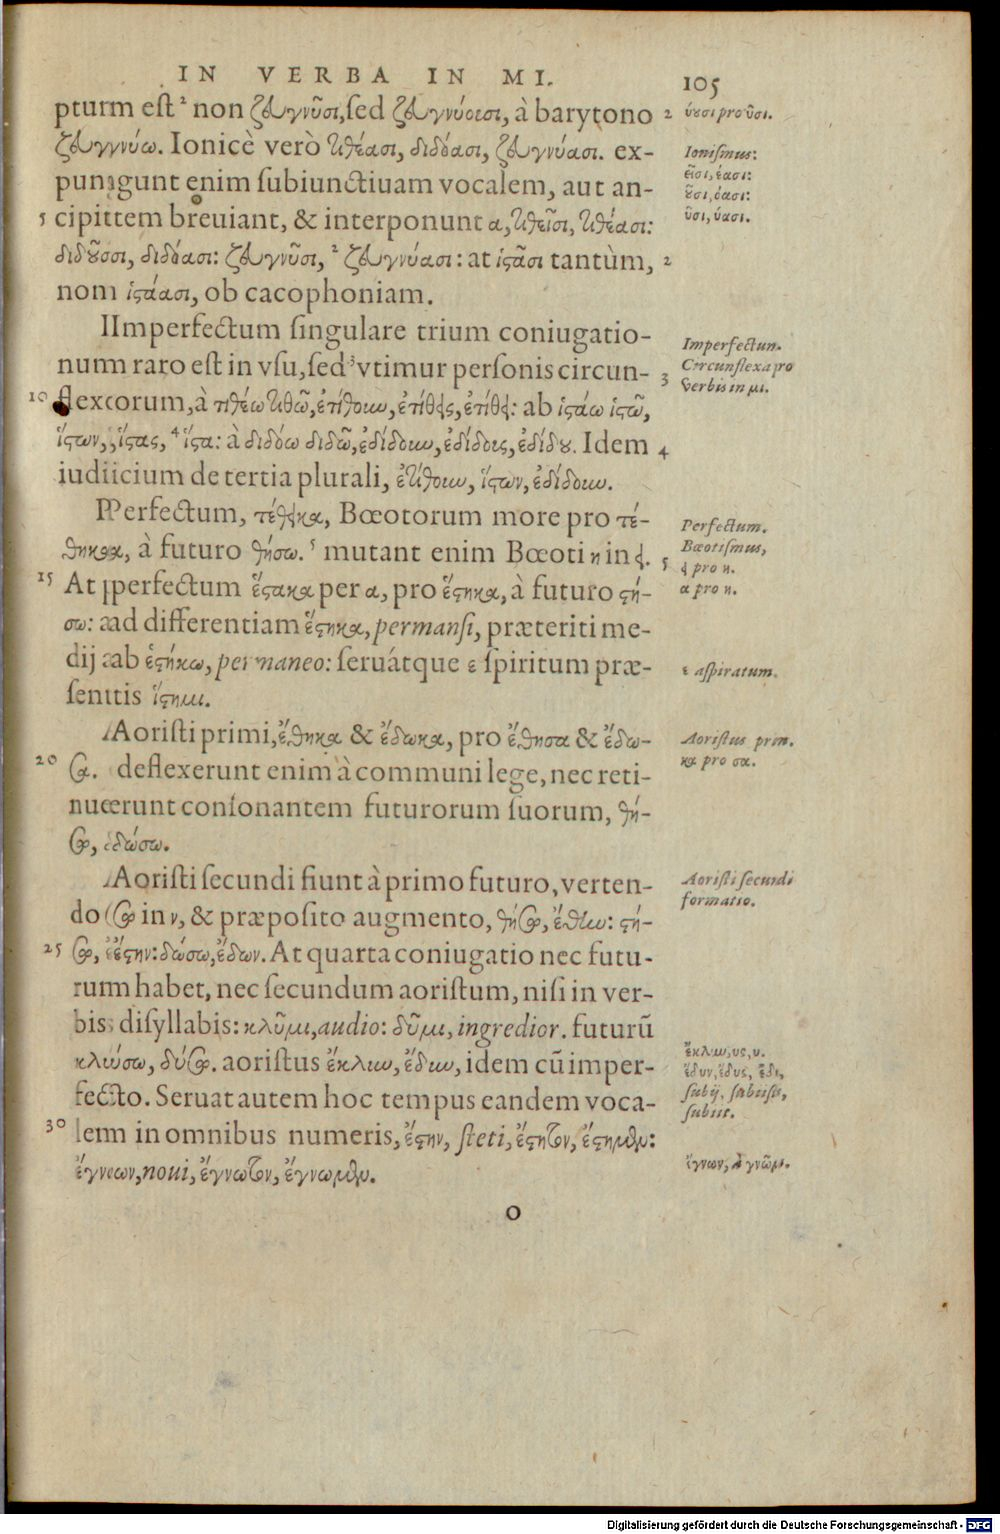 IN VERBA IN MI.
105
pturm est ² non ζευγνῦσι, sed ζευγνύουσι, à barytono
ζευγνύω. Ionicè verò τιθέασι, διδόασι, ζευγνύασι. ex-
pungunt enim subiunctiuam vocalem, aut an-
5 cipitem breuiant, & interponunt α, τιθεῖσι, τιθέασι:
διδοῦσι, διδόασι: ζευγνῦσι, ² ζευγνύασι: at ἱςᾶσι tantùm,
nom ἱςάασι, ob cacophoniam.
Imperfectum singulare trium coniugatio-
num raro est in vsu, sed ³ vtimur personis circun-
10 flexorum, à τιθέω τιθῶ, ἐτίθουν, ἐτίθεις, ἐτίθει: ab ἱςάω ἱςῶ,
ἵςων, ἵςας, ⁴ ἵςα: à διδόω διδῶ, ἐδίδουν, ἐδίδους, ἐδίδου. Idem
iudicium de tertia plurali, ἐτίθουν, ἵςων, ἐδίδουν.
Perfectum, τέθεικα, Bœotorum more pro τέ-
θηκα, à futuro θήσω. ⁵ mutant enim Bœoti η in ει.
15 At perfectum ἕςακα per α, pro ἕςηκα, à futuro ςή-
σω: ad differentiam ἕςηκα, permansi, præteriti me-
dij ab ἑςήκω, permaneo: seruátque ε spiritum præ-
sentis ἵςημι.
Aoristi primi, ἔθηκα & ἔδωκα, pro ἔθησα & ἔδω-
20 σα. deflexerunt enim à communi lege, nec reti-
nuerunt consonantem futurorum suorum, θή-
σω, δώσω.
Aoristi secundi fiunt à primo futuro, verten-
do σω in ν, & præposito augmento, θήσω, ἔθην: ςή-
25 σω, ἔςην: δώσω, ἔδων. At quarta coniugatio nec futu-
rum habet, nec secundum aoristum, nisi in ver-
bis disyllabis: κλῦμι, audio: δῦμι, ingredior. futurũ
κλύσω, δύσω. aoristus ἔκλυν, ἔδυν, idem cũ imper-
fecto. Seruat autem hoc tempus eandem voca-
30 lem in omnibus numeris, ἔςην, steti, ἔςητον, ἔςημεν:
ἔγνων, noui, ἔγνωτον, ἔγνωμεν.
O
2 ύουσι pro ῦσι.
Ionismus:
εῖσι, έασι:
οῦσι, όασι:
ῦσι, ύασι.
2
Imperfectum.
3 Circunflexa pro
verbis in μι.
4
Perfectum.
Bœotismus,
5 ει pro η.
α pro η.
ε aspiratum.
Aoristus prim.
κα pro σα.
Aoristi secundi
formatio.
ἔκλυν, υς, υ.
ἔδυν, ἔδυς, ἔδυ,
subij, subiisti,
subiit.
ἔγνων, à γνῶμι.
Digitalisierung gefördert durch die Deutsche Forschungsgemeinschaft - DFG